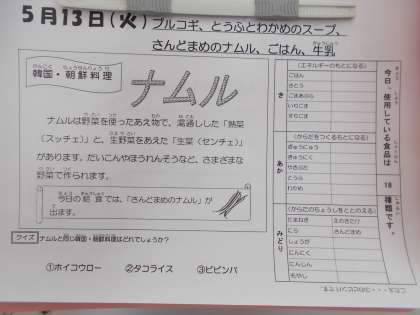 5月13日(火)プルコギ、とうふとわかめのスープ、
さんどまめのナムル、ごはん、牛乳
韓国・朝鮮料理
ナムル
ナムルは野菜を使ったあえ物で、湯通しした「熟菜
(スッチェ)」と、生野菜をあえた「生菜(センチェ)」
があります。だいこんやほうれんそうなど、さまざまな
野菜で作られます。
今日の給食では、「さんどまめのナムル」が
出ます。
クイズ ナムルと同じ韓国・朝鮮料理はどれでしょうか?
①ホイコウロー ②タコライス ③ビビンバ
き
(エネルギーのもとになる)
ごはん
さとう
ごまあぶら
いりごま
すりごま
あか
(からだをつくるもとになる)
ぎゅうにゅう
ぎゅうにく
やきぶた
とうふ
わかめ
みどり
(からだのちょうしをととのえる)
たまねぎ えのきたけ
にら さんどまめ
しょうが
にんにく
にんじん
もやし
今日、使用している食品は
18
種類です。